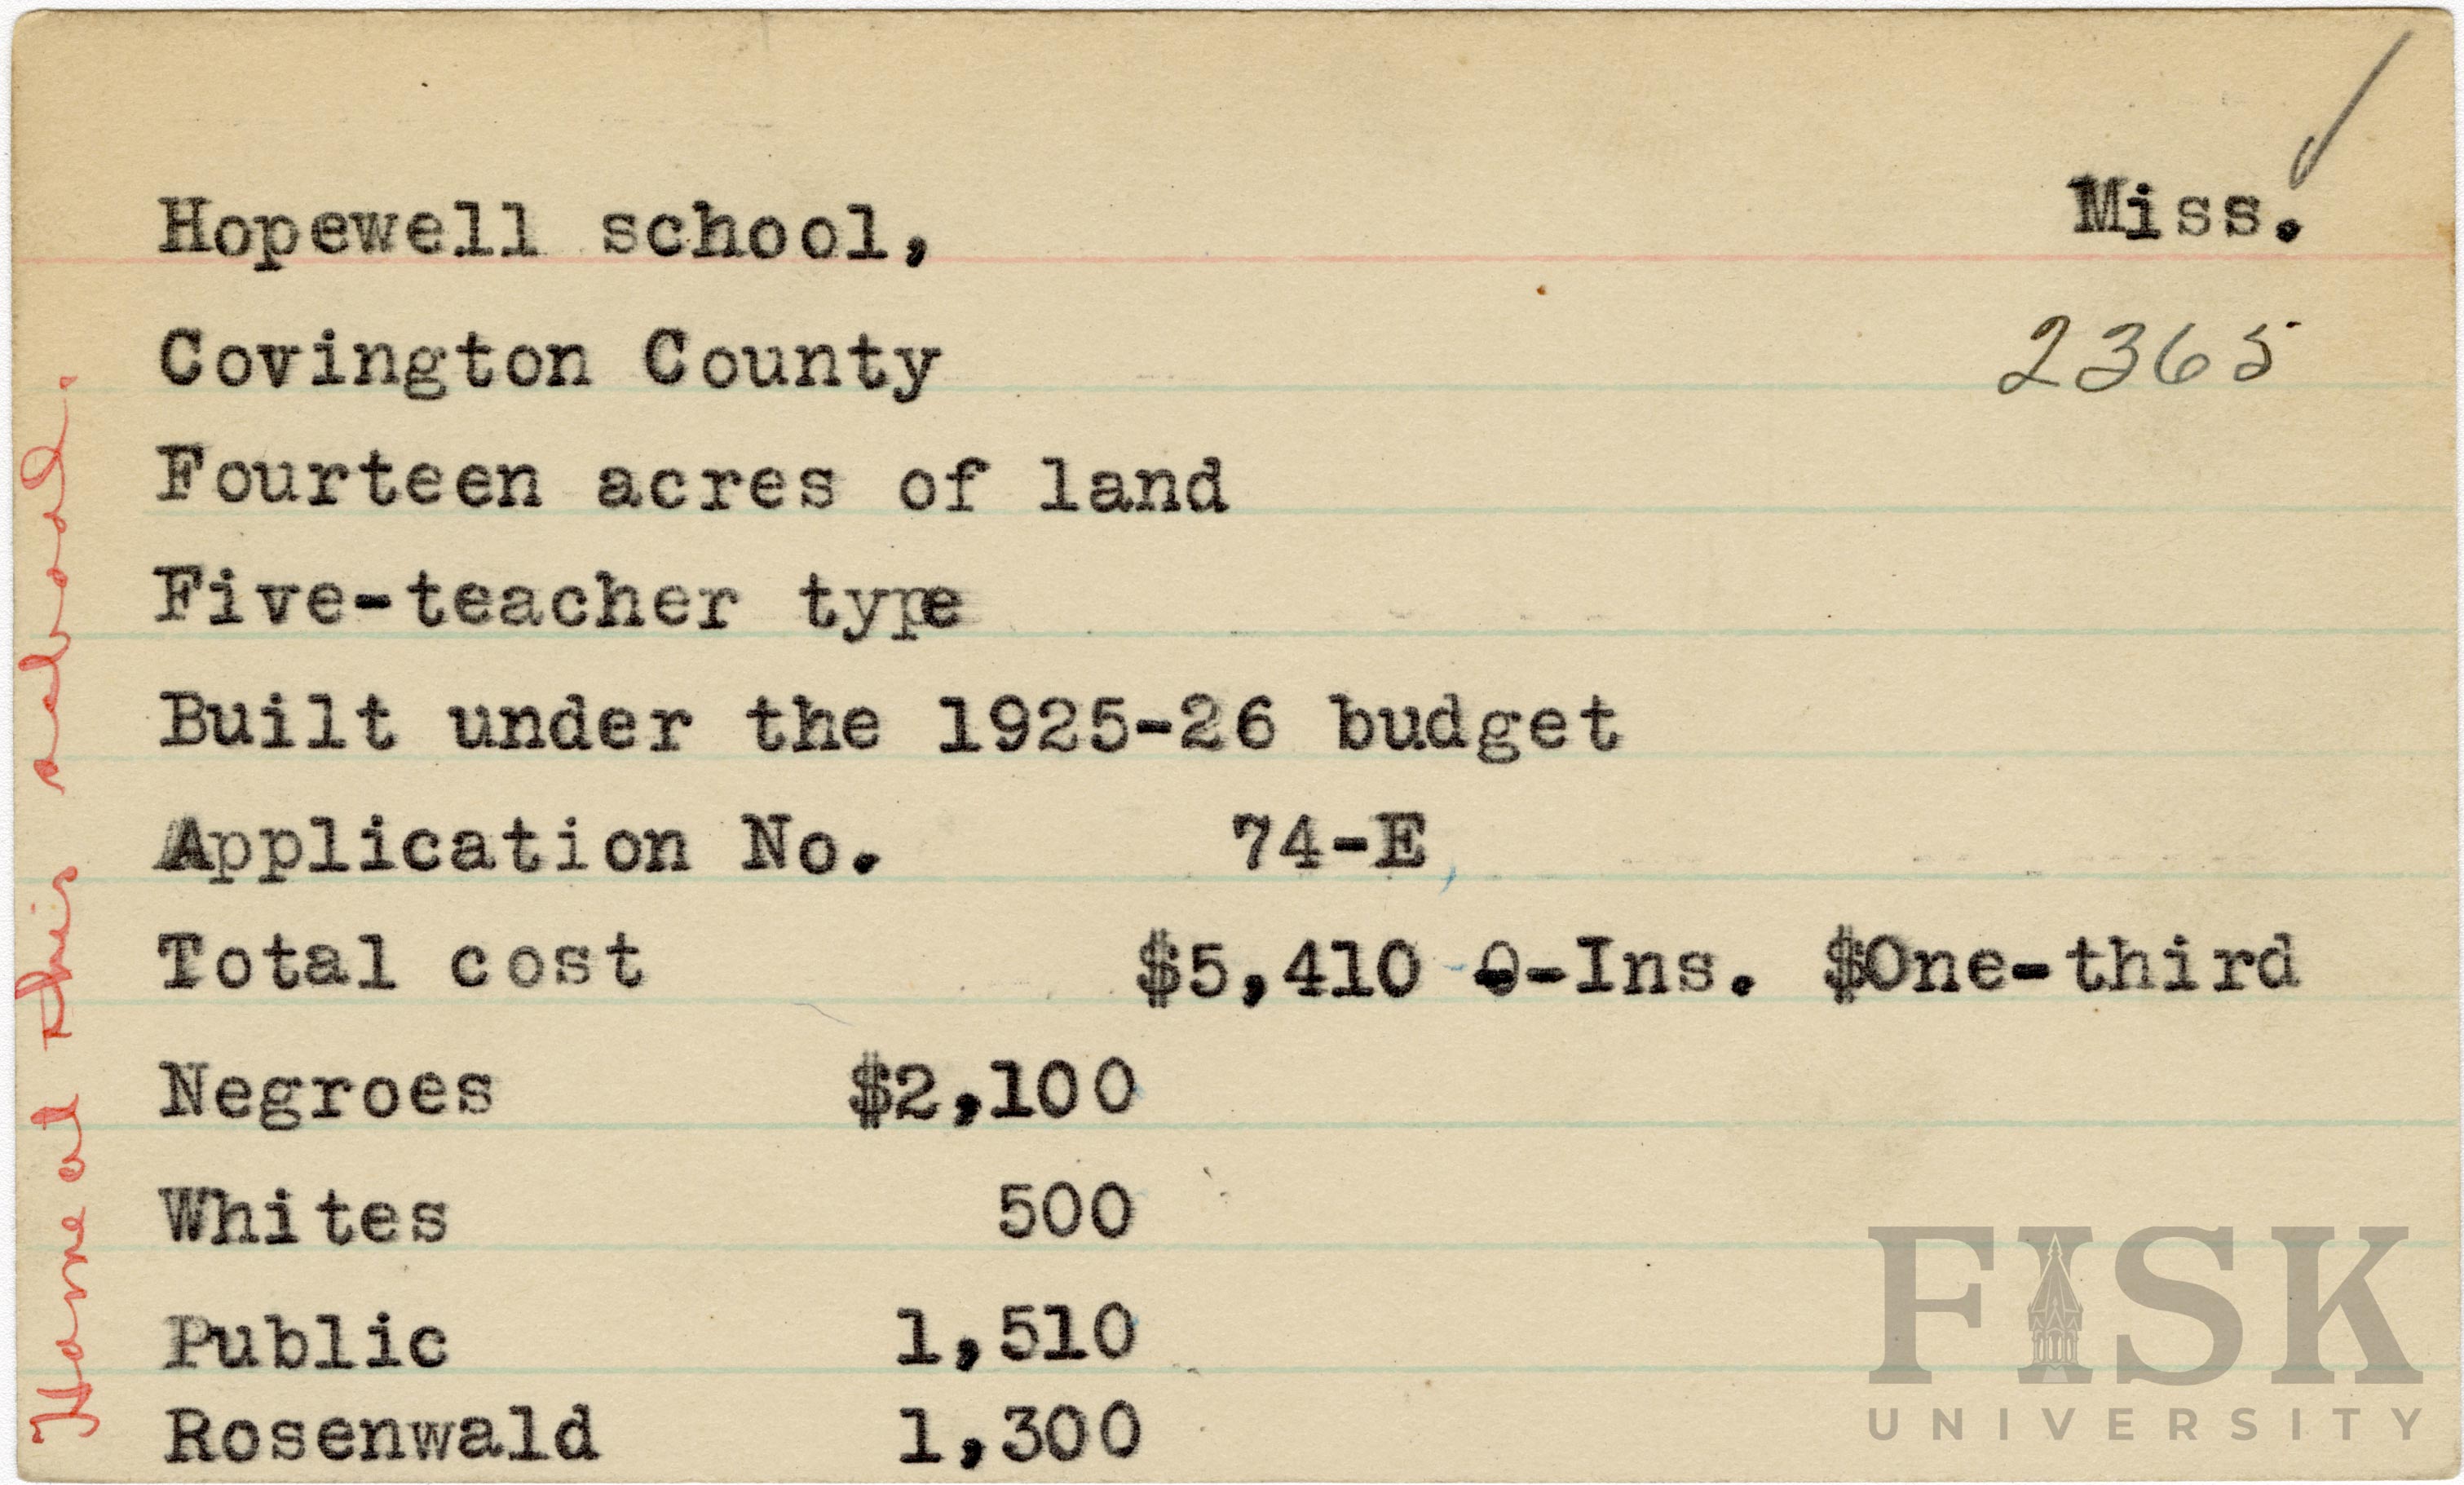 Miss.
Hopewell school,
2365
Covington County
Fourteen acres of land
Five-teacher type
Built under the 1925-26 budget
Application No. 74-E
Total cost $5,410 0-Ins. $One-third
Negroes $2,100
Whites 500
Public 1,510
Rosenwald 1,300
Home at this school.
FISK
UNIVERSITY